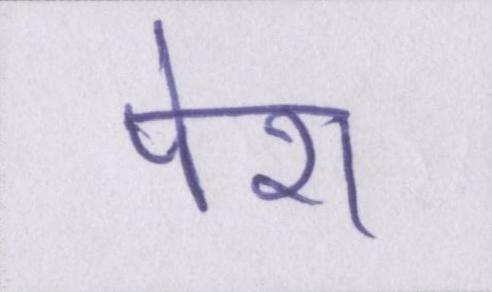 पेश